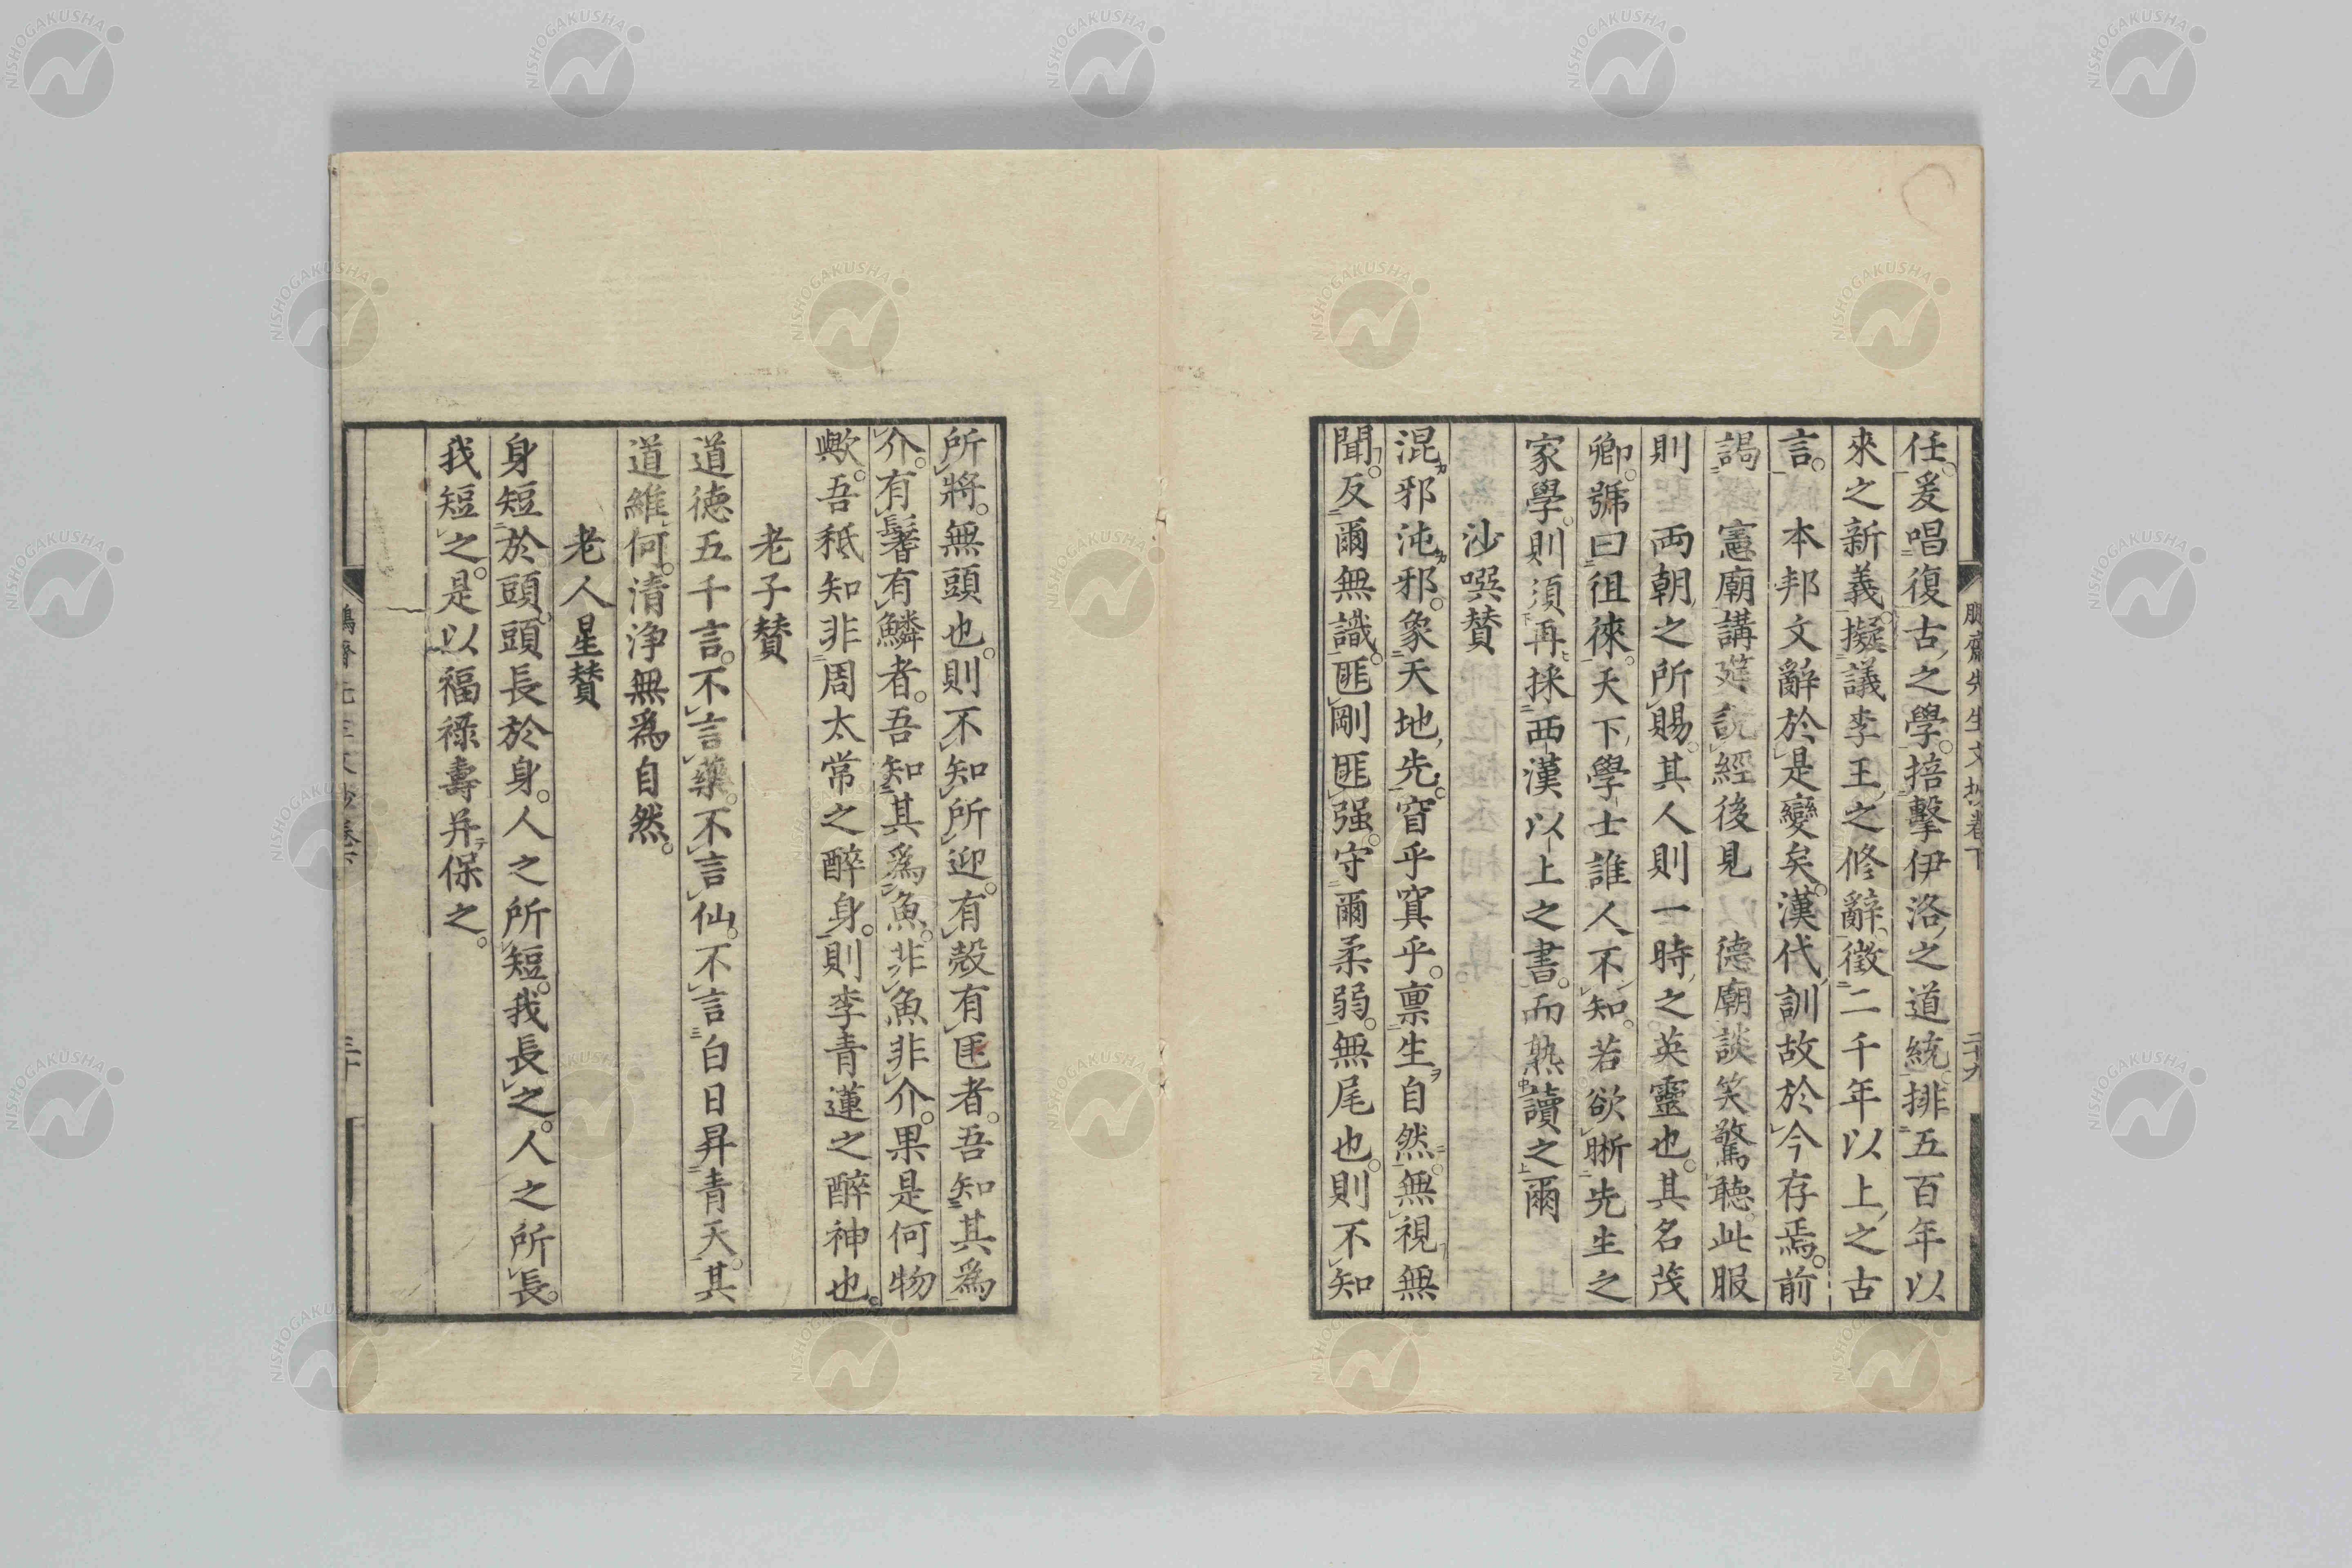 任。爰唱復古之學。掊擊伊洛之道統。排五百年以
來之新義。擬議李王之修辭。徵二千年以上之古
言。本邦文辭於是變矣。漢代訓故於今存焉。前
謁憲廟講筵說經後見德廟談笑驚聽。此服
則両朝之所賜。其人則一時之英靈也。其名茂
卿。號曰徂徠。天下學士誰人不知。若欲晰先生之
家學。則須再採西漢以上之書。而熟讀之爾
沙噀賛
混邪沌邪。象天地先。窅乎寞乎。禀生自然。無視無
聞。反爾無識。匪剛匪强。守爾柔弱。無尾也。則不知
所將。無頭也。則不知所迎。有殼有匡者。吾知其爲
介。有鬐有鱗者。吾知其爲魚。非魚非介。果是何物
歟。吾秪知非周太常之醉身。則李青蓮之醉神也。
老子賛
道德五千言。不言藥。不言仙。不言白日昇青天。其
道維何。清浄無爲自然。
老人星賛
身短於頭。頭長於身。人之所短。我長之。人之所長。
我短之。是以福禄壽并保之。
鵬齋先生文抄卷下
二十九
NISHOGAKUSHA